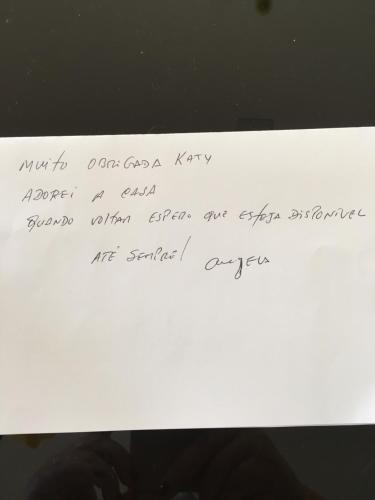 MUITO OBRIGADA KATY
ADOREI A CASA
QUANDO VOLTAR ESPERO QUE ESTEJA DISPONIVEL
ATÉ SEMPRE!
Angela